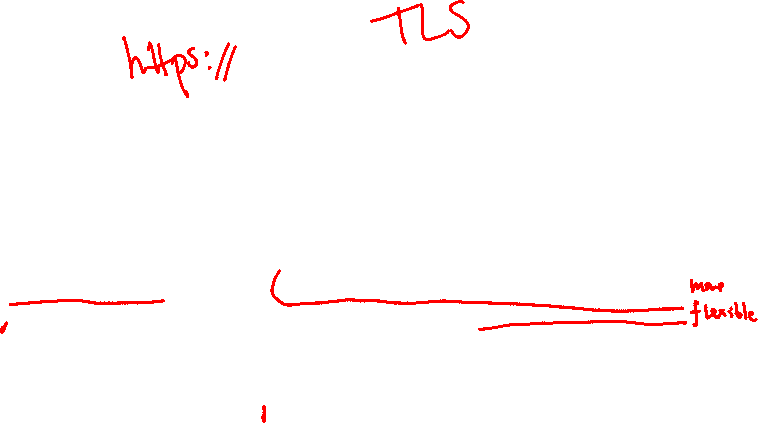 TLS
https://
more
flexible